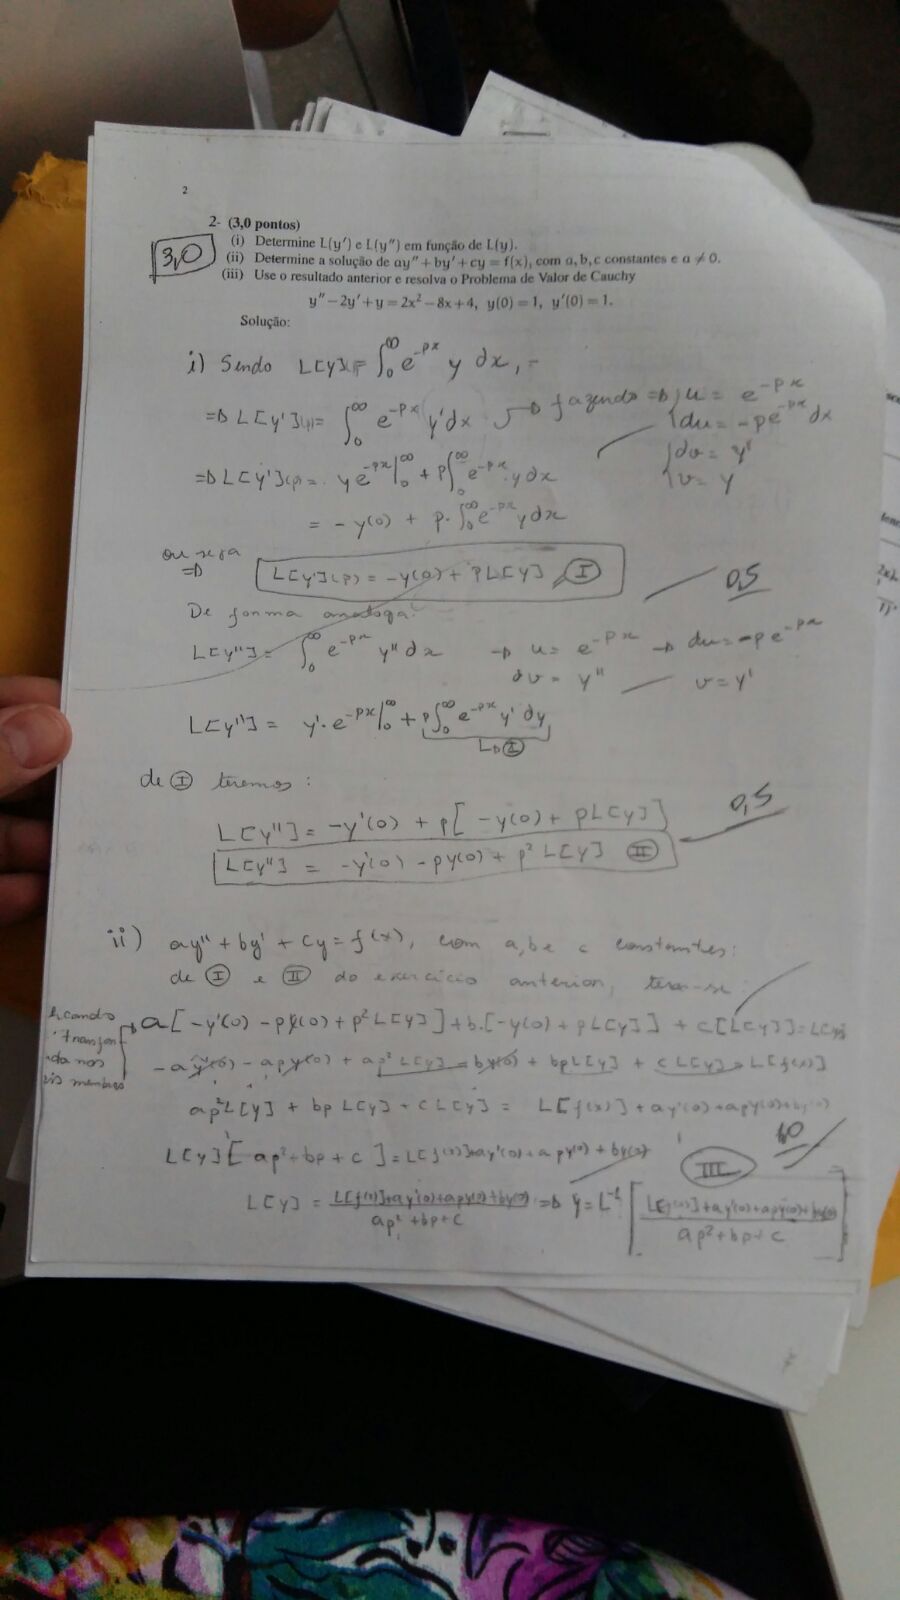 2
2- (3,0 pontos)
3,0
(i) Determine L(y′) e L(y″) em função de L(y).
(ii) Determine a solução de ay″ + by′ + cy = f(x), com a, b, c constantes e a ≠ 0.
(iii) Use o resultado anterior e resolva o Problema de Valor de Cauchy
y″ − 2y′ + y = 2x² − 8x + 4, y(0) = 1, y′(0) = 1.
Solução:
i) Sendo L[y](p) = ∫₀^∞ e^{-px} y dx,
⇒ L[y'](p) = ∫₀^∞ e^{-px} y' dx → fazendo ⇒ u = e^{-px}
du = -pe^{-px} dx
dv = y'
v = y
⇒ L[y'](p) = y e^{-px}|₀^∞ + p∫₀^∞ e^{-px} y dx
= - y(0) + p·∫₀^∞ e^{-px} y dx
ou seja
⇒ L[y'](p) = -y(0) + pL[y] I
0,5
De forma analoga:
L[y''] = ∫₀^∞ e^{-px} y'' dx → u = e^{-px} → du = -pe^{-px}
dv = y'' v = y'
L[y''] = y'·e^{-px}|₀^∞ + p∫₀^∞ e^{-px} y' dy
I
de I teremos:
L[y''] = -y'(0) + p[-y(0) + pL[y]]
0,5
L[y''] = -y'(0) - py(0) + p² L[y] II
ii) ay'' + by' + cy = f(x), com a, b e c constantes:
de I e II do exercício anterior, tem-se:
a[-y'(0) - py(0) + p² L[y]] + b.[-y(0) + pL[y]] + c[L[y]] =
-ay'(0) - apy(0) + ap² L[y] - by(0) + bpL[y] + cL[y] = L[f(x)]
ap²L[y] + bp L[y] + c L[y] = L[f(x)] + ay'(0) + apy(0) + by(0)
L[y][ap² + bp + c] = L[f(x)] + ay'(0) + apy(0) + by(0)
III
1,0
L[y] = L[f(x)] + ay'(0) + apy(0) + by(0) / ap² + bp + c ⇒ y = L⁻¹ [L[f(x)] + ay'(0) + apy(0) + by(0) / ap² + bp + c]